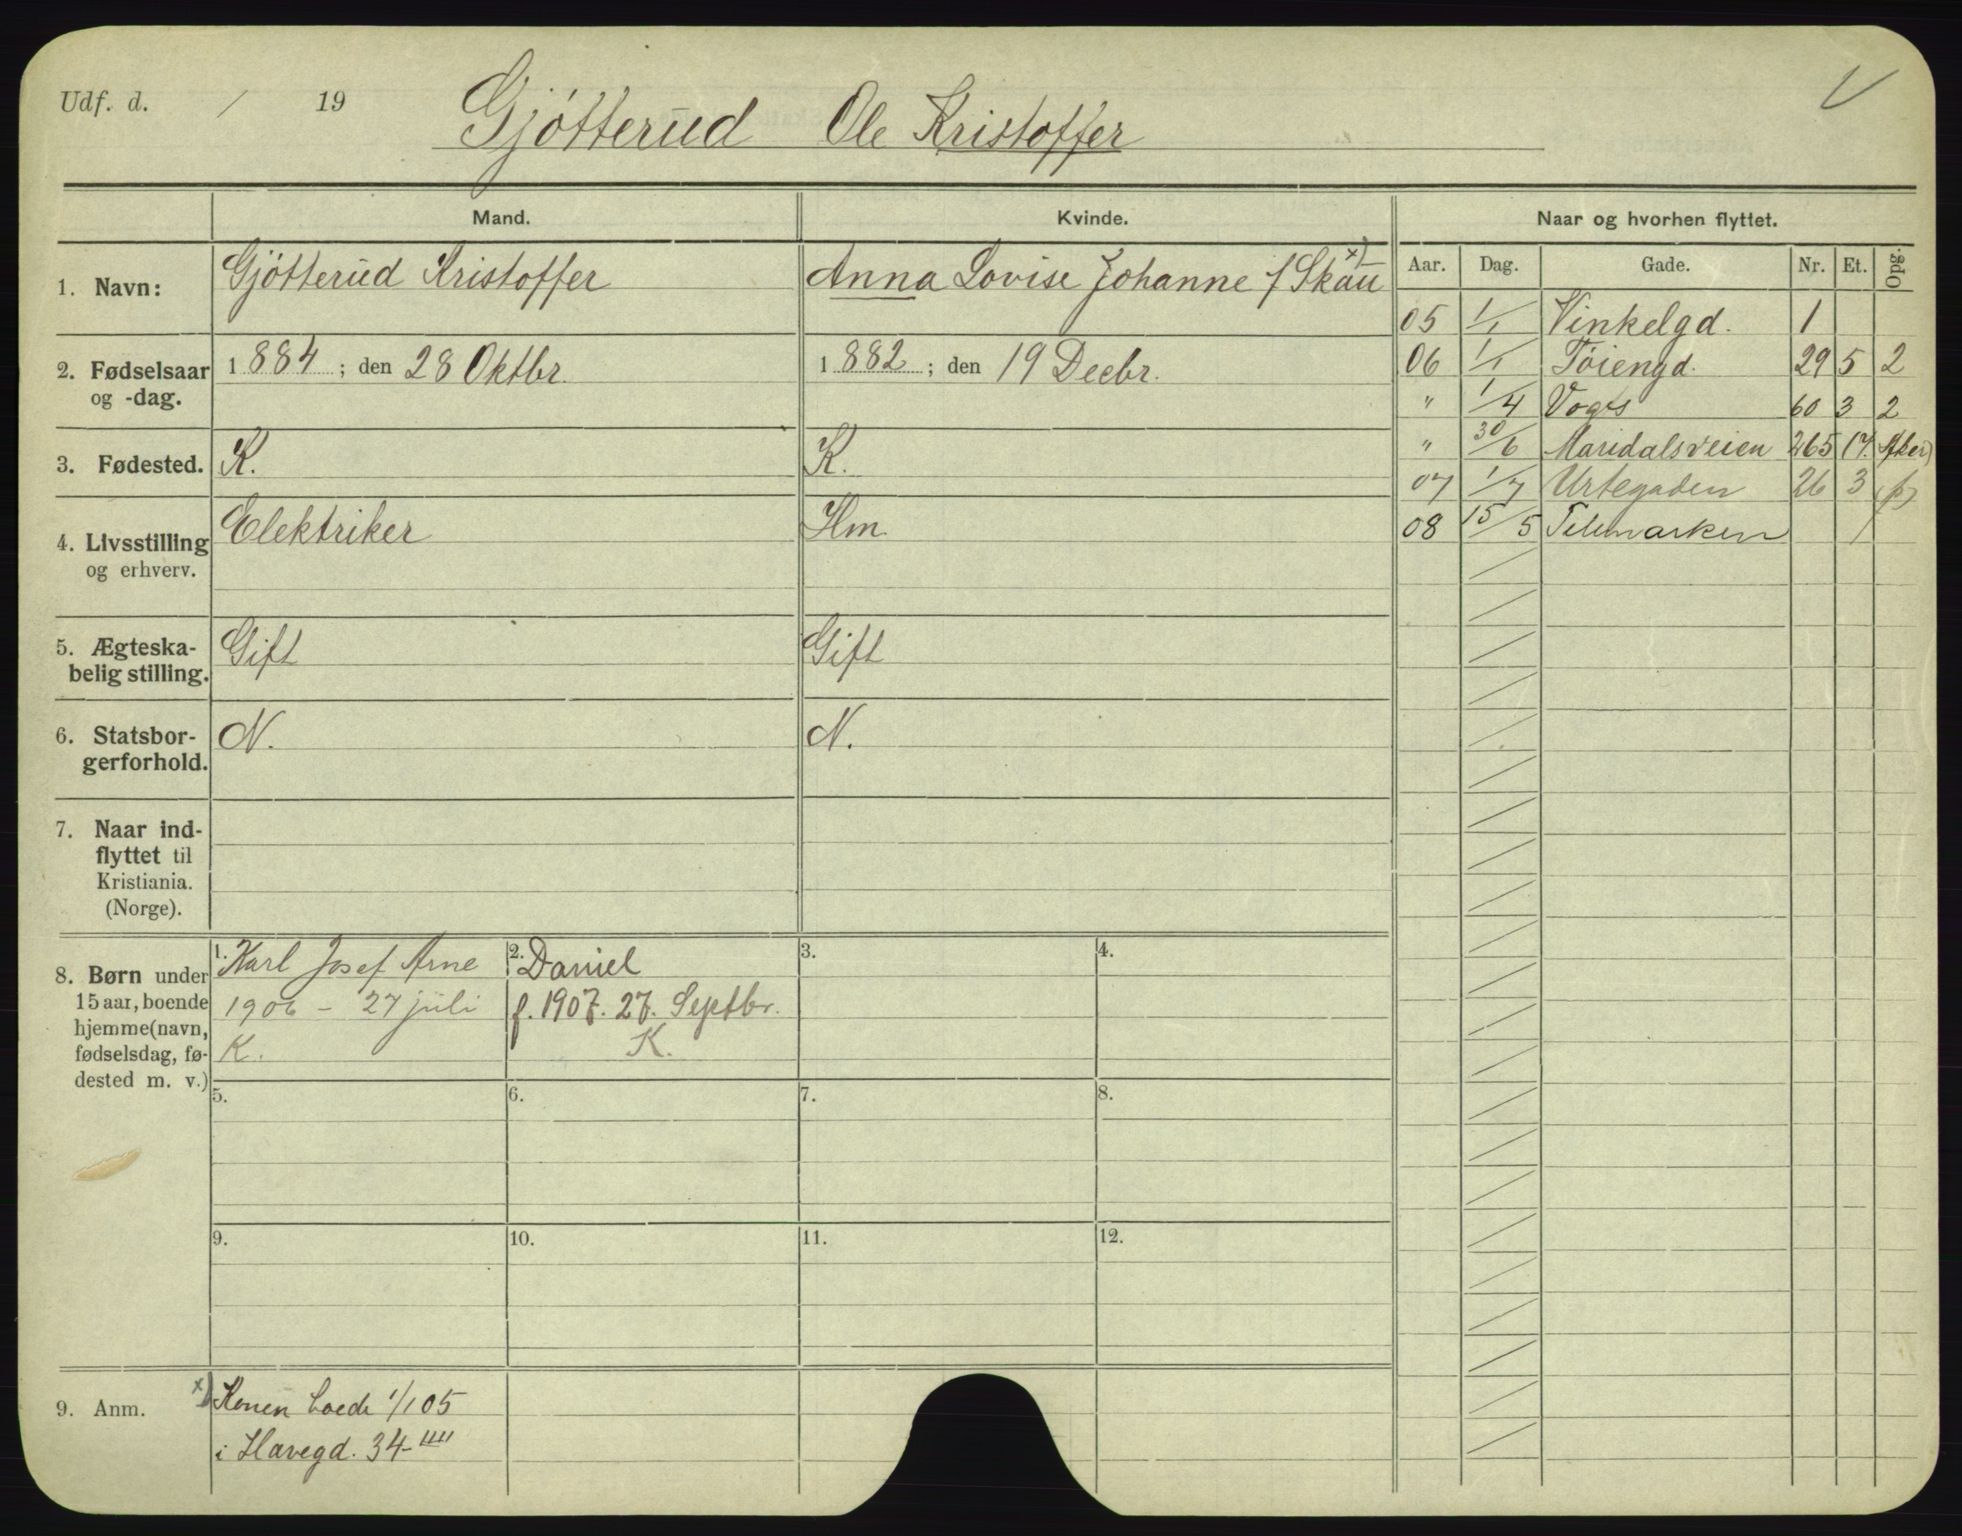 Udf. d. / 19 Gjótterud Ole Kristoffer V
Mand. Kvinde. Naar og hvorhen flyttet.
Aar. Dag. Gade. Nr. Et. Opg.
1. Navn: Gjótterud Kristoffer Anna Lovise Johanne f Skau x)
2. Fødselsaar og -dag. 1884 ; den 28 Oktbr. 1882 ; den 19 Decbr.
3. Fødested. K. K.
4. Livsstilling og erhverv. Elektriker Hm
5. Ægteska-
belig stilling. Gift Gift
6. Statsbor-
gerforhold. N. N.
7. Naar ind-
flyttet til
Kristiania.
(Norge).
8. Børn under
15 aar, boende
hjemme (navn,
fødselsdag, fø-
dested m. v.)
1. Karl Josef Arne
1906 - 27 juli
K.
2. Daniel
f. 1907. 27. Septbr.
K.
3. 4.
5. 6. 7. 8.
9. 10. 11. 12.
9. Anm. x) Konen boede 1/1 05
i Havegd. 34-""
05 1/1 Vinkelgd. 1
06 1/1 Tóiengd. 29 5 2
" 1/4 Vogts 60 3 2
" 30/6 Maridalsveien 265 (Aker)
07 1/7 Urtegaden 26 3
08 15/5 Telemarken